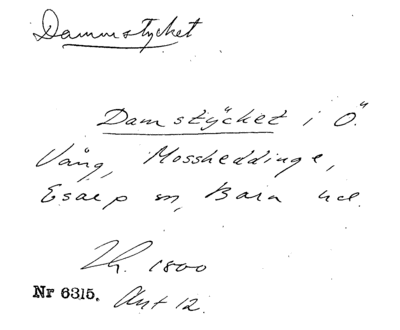 Dammstycket
Damstÿcket i Ö.
Vång, Mossheddinge,
Esarp sn, Bara hd.
Lh. 1800
Nr 6315. Akt 12.